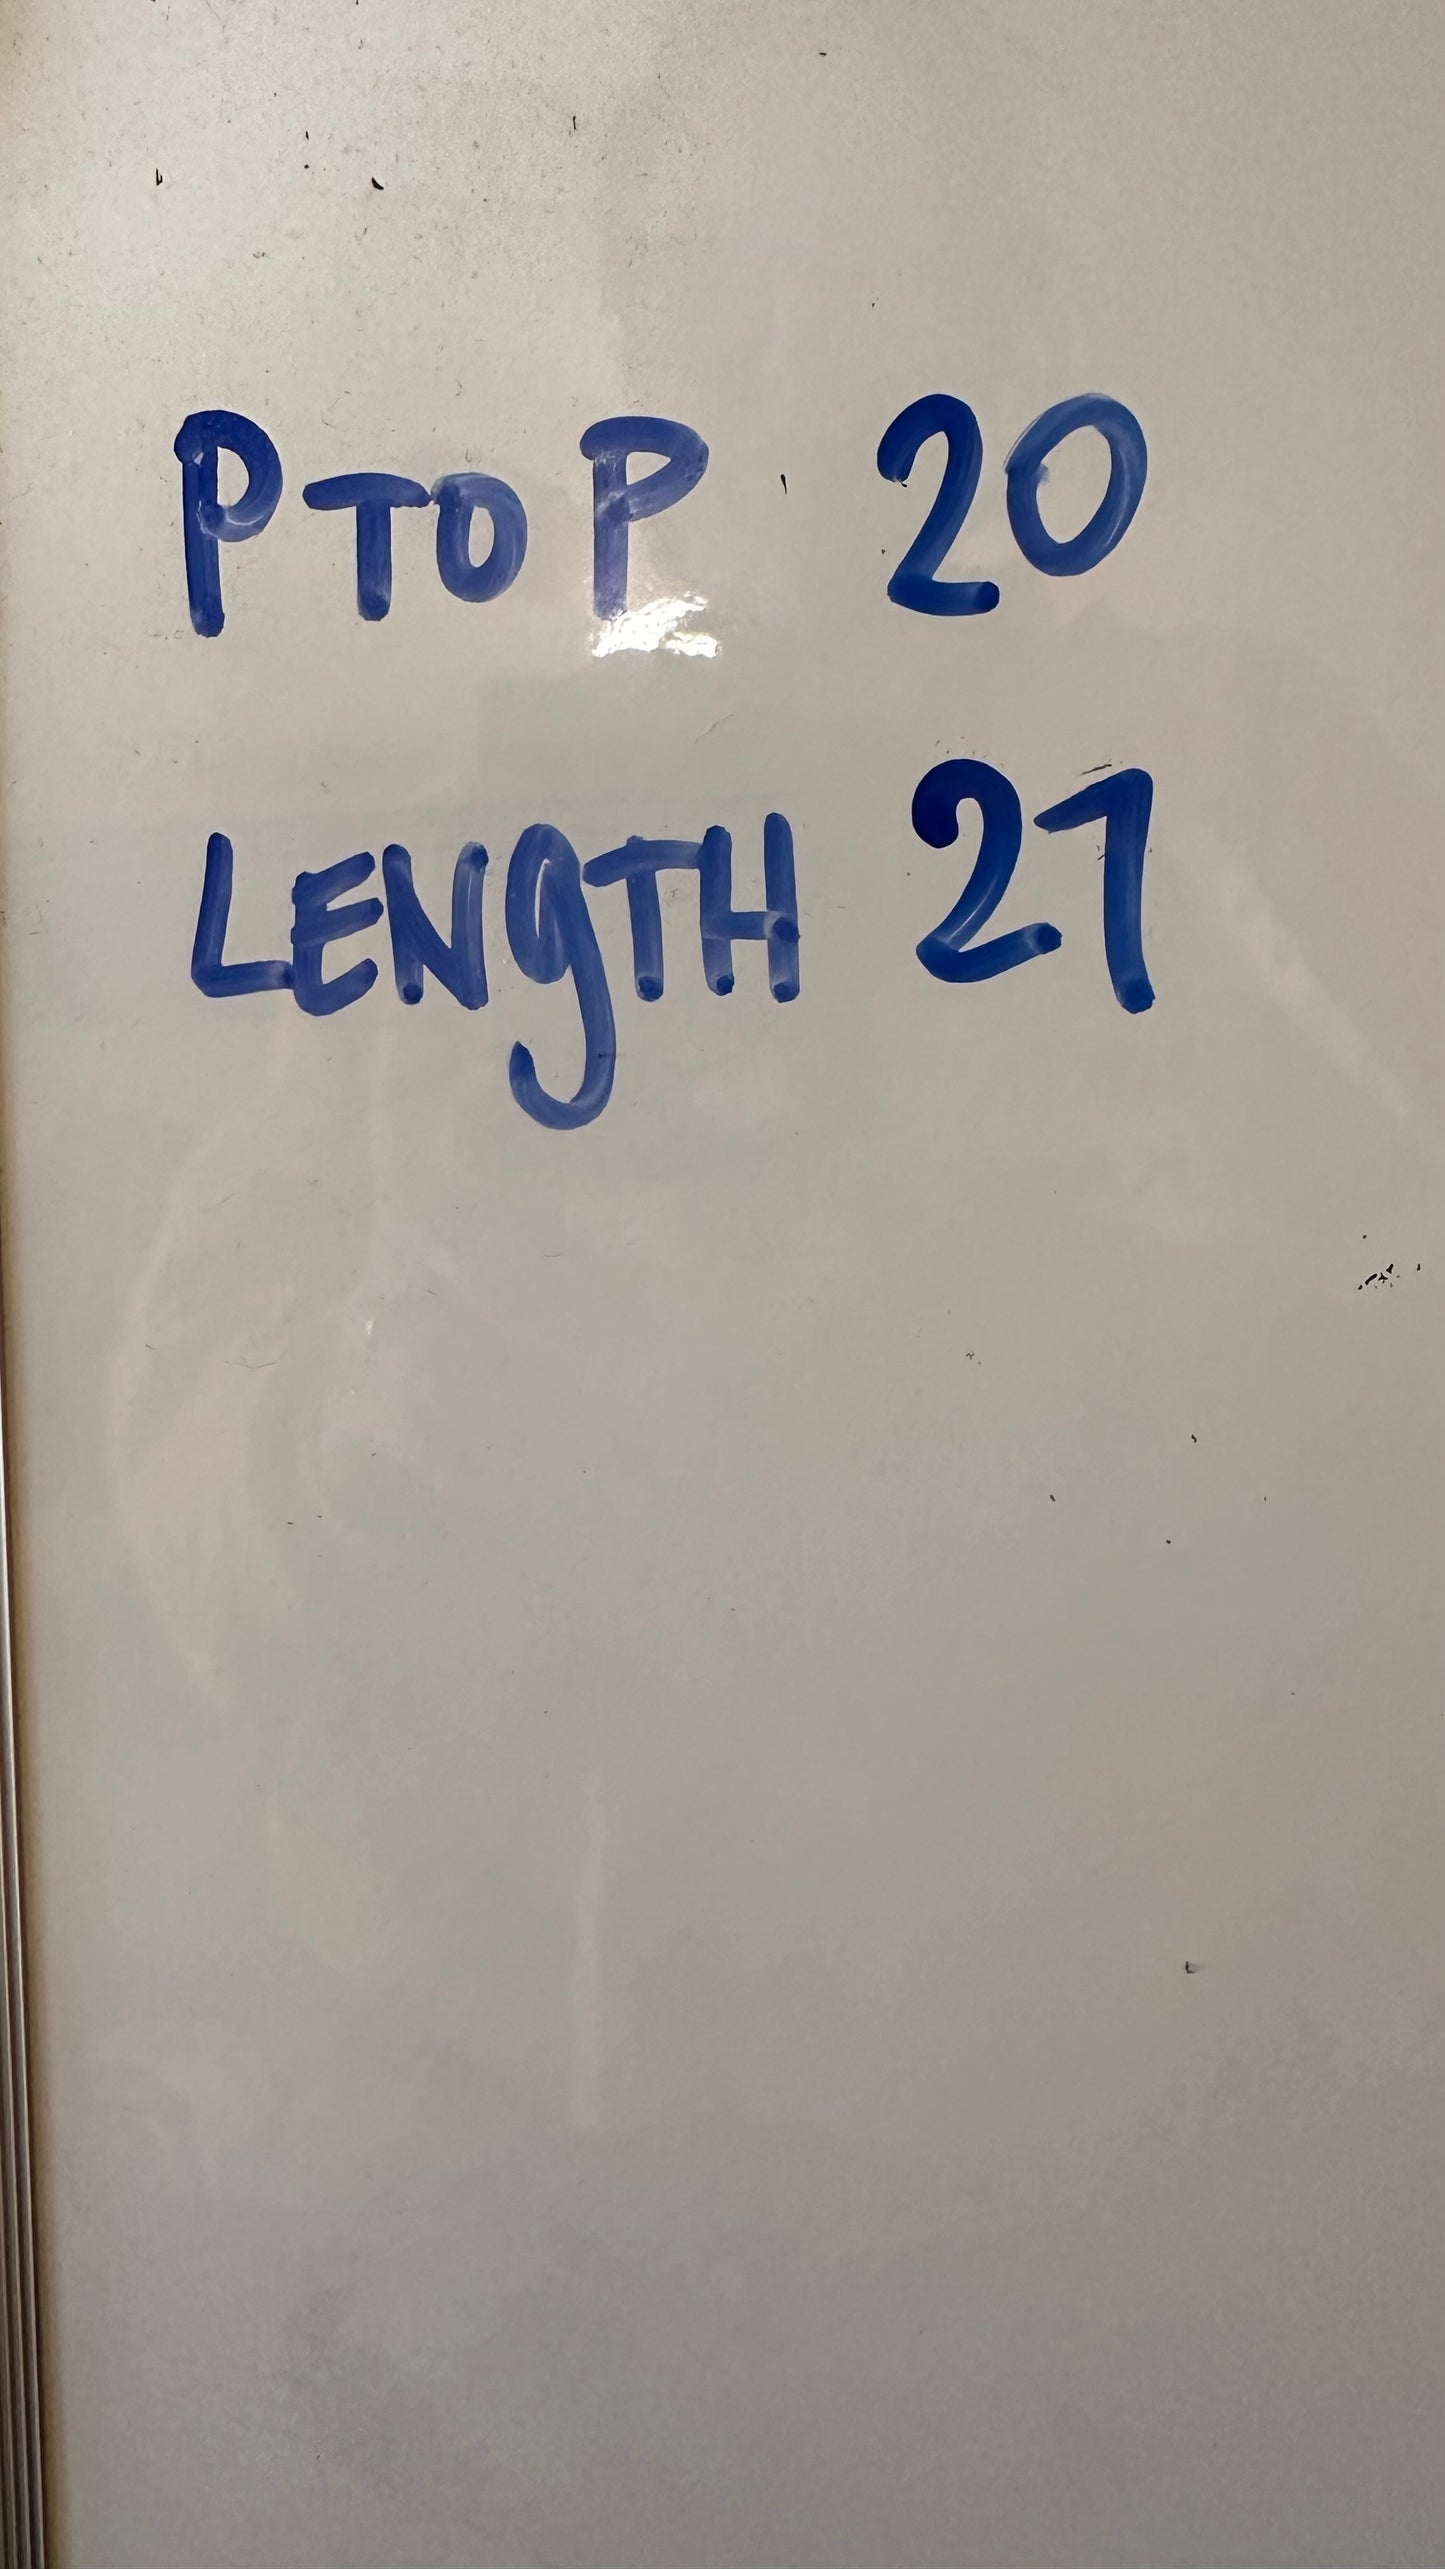 P TO P 20
LENgTH 21